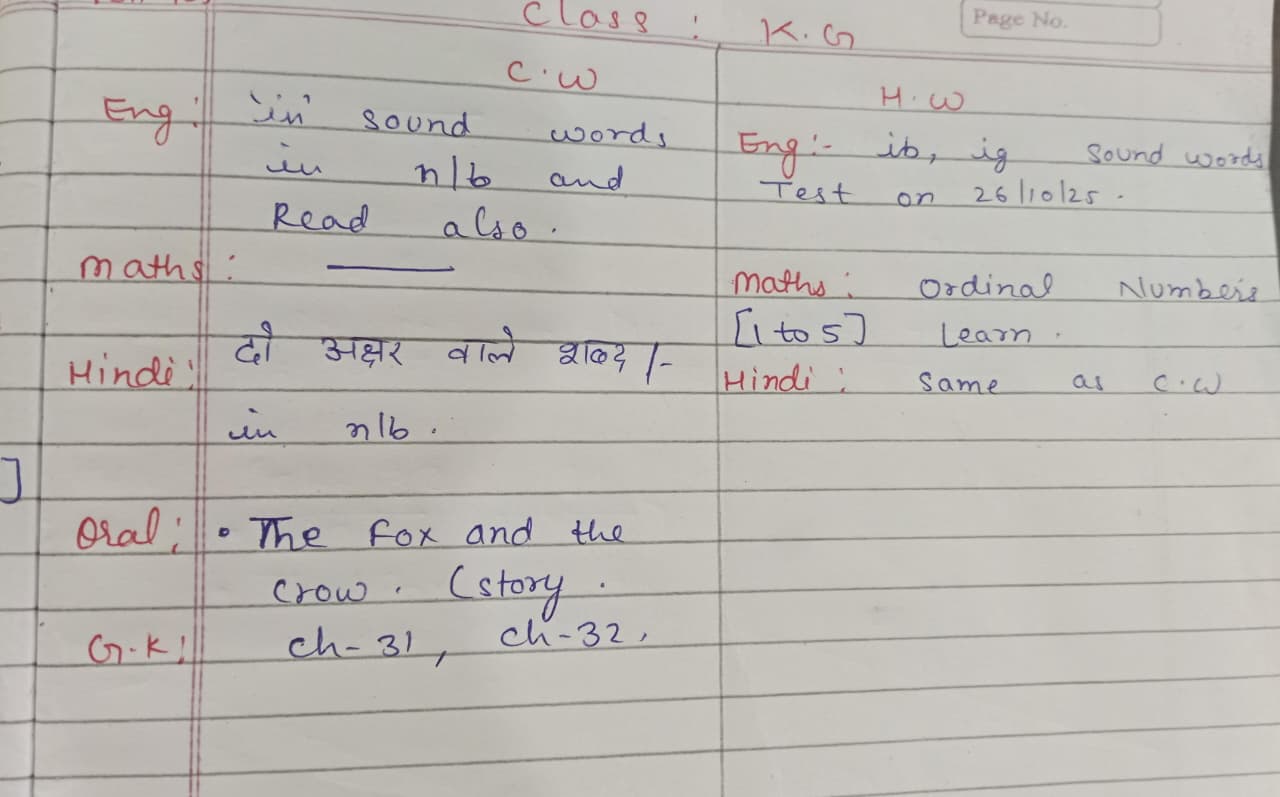 Class : K.G
Page No.
C.W
Eng: 'in' sound words
in n/b and
Read also.
Maths: ——
Hindi: दो अक्षर वाले शब्द /-
in n/b.
]
Oral: • The Fox and the
crow. (story.
G.K: ch-31, ch-32,
H.W
Eng:- ib, ig sound words
Test on 26/10/25.
Maths: Ordinal Numbers
[1 to 5] Learn.
Hindi: Same as C.W